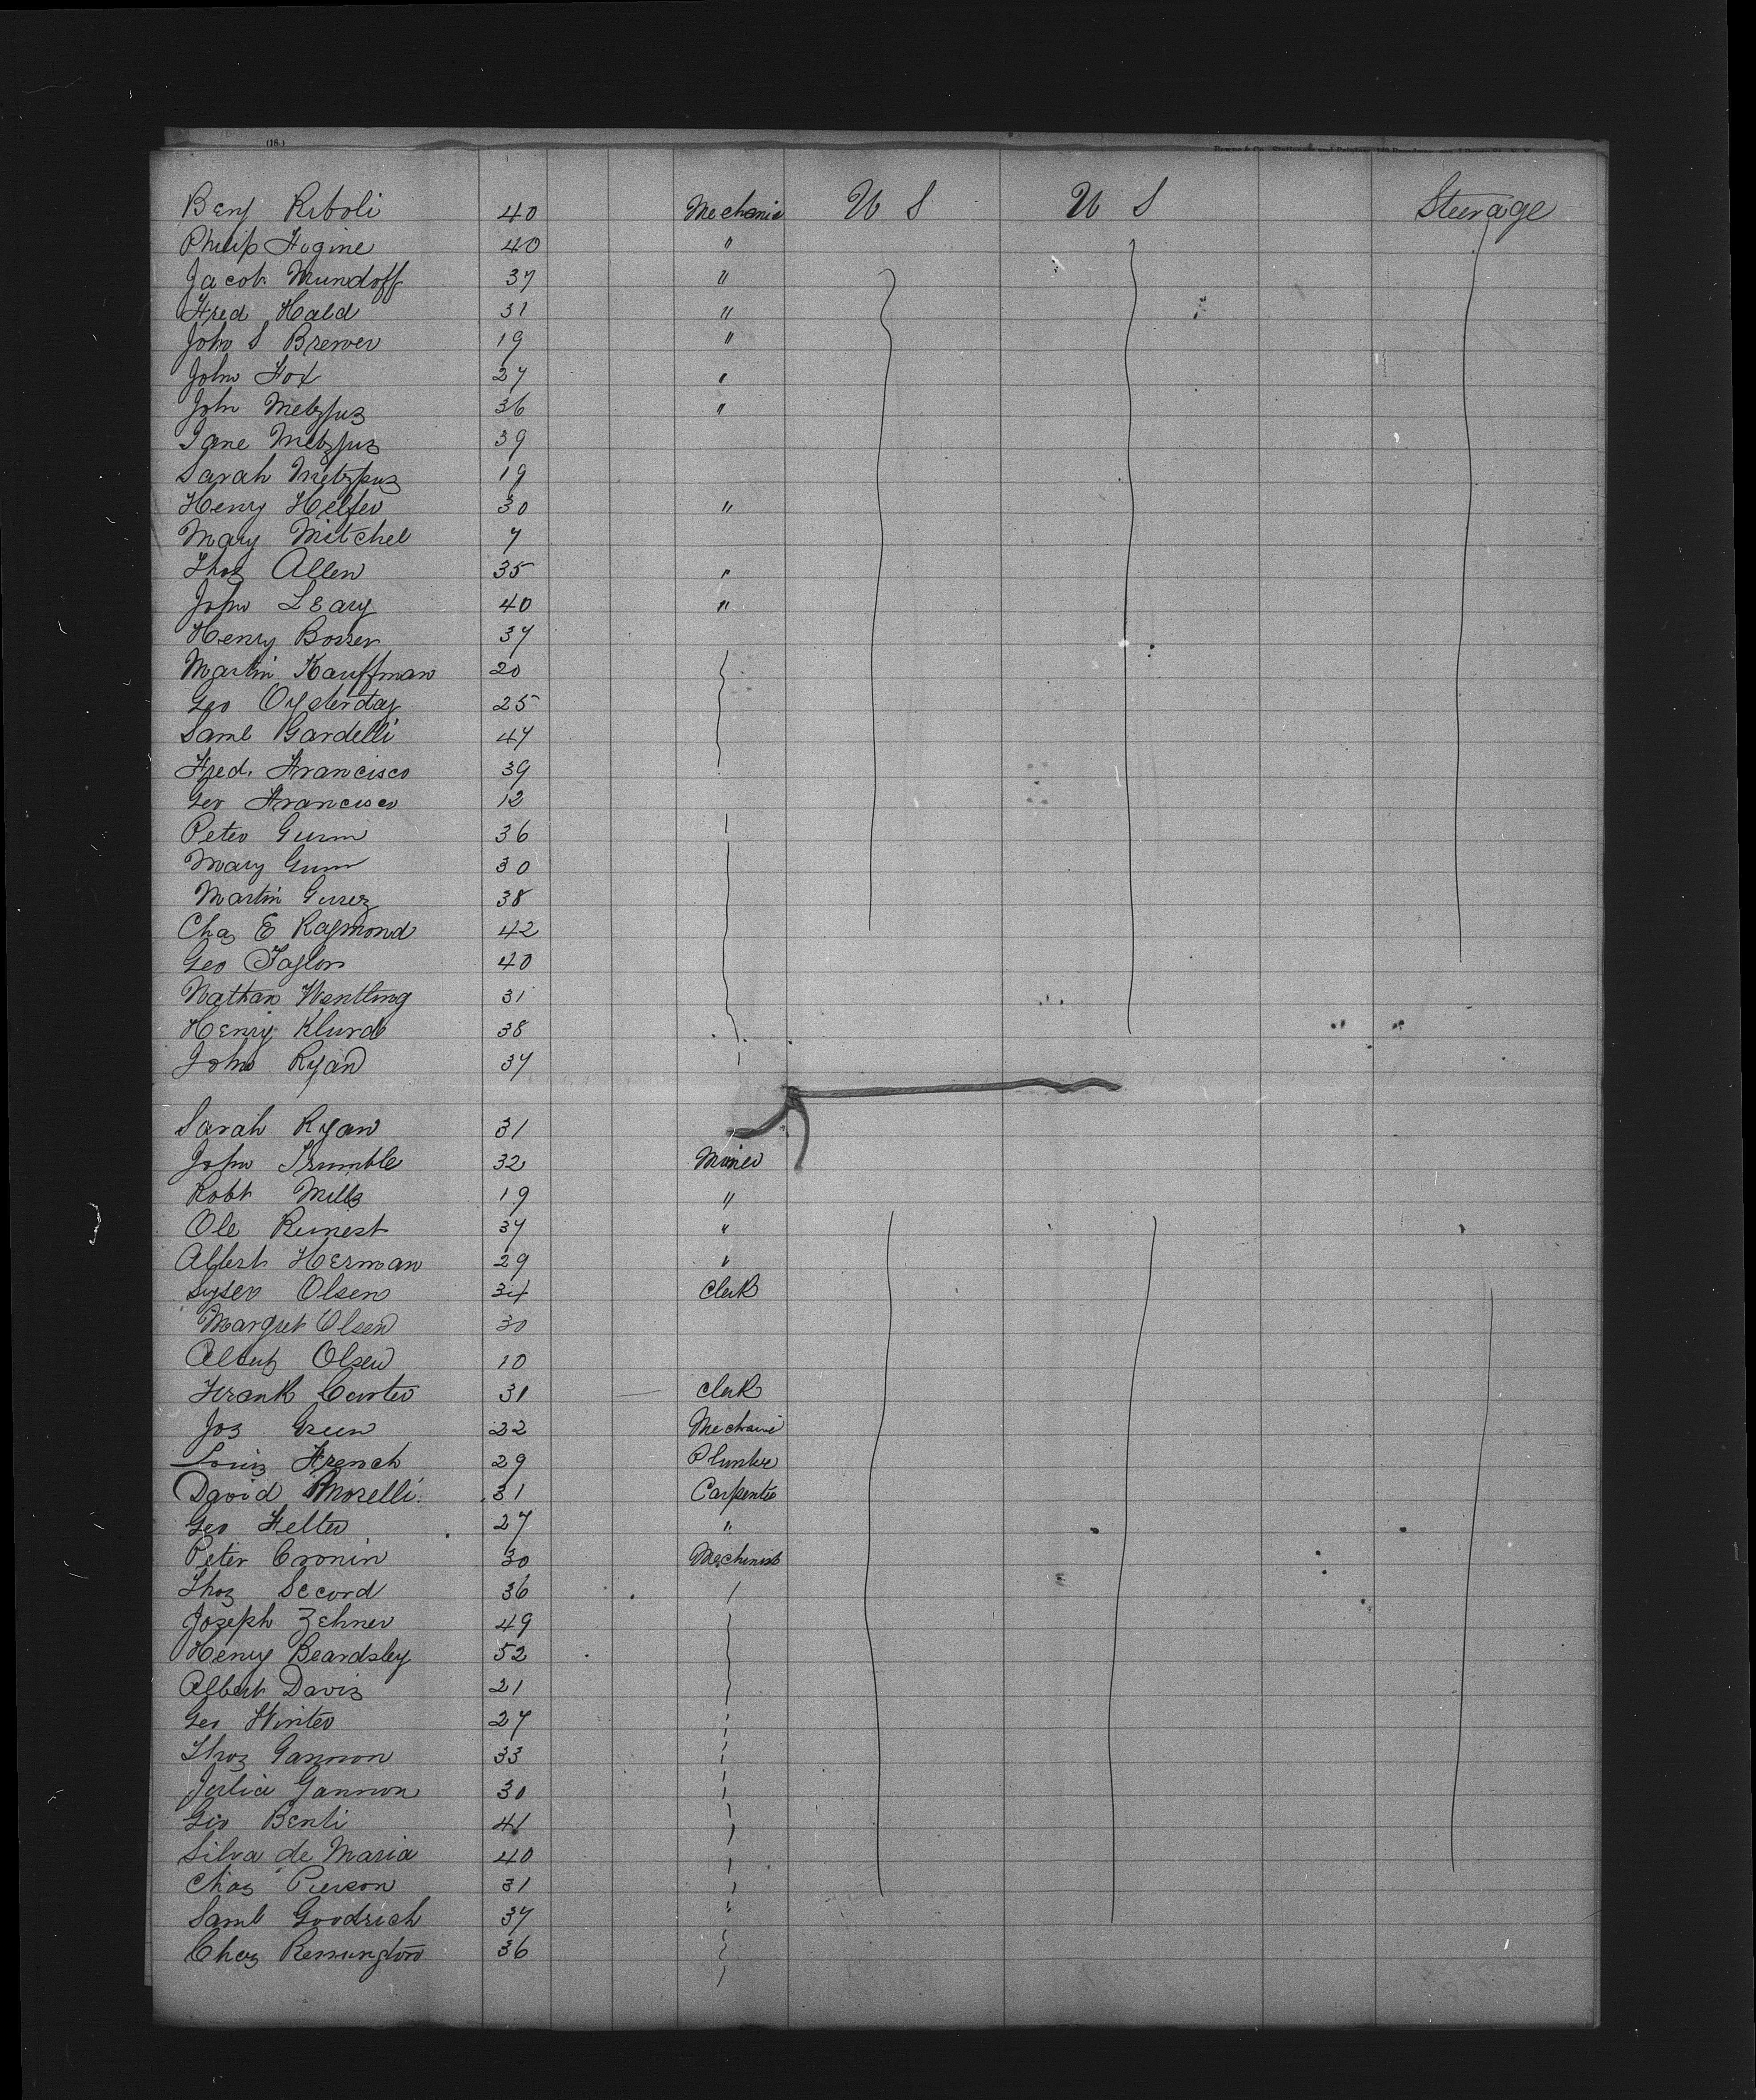 (18.)
Benj Riboli 40 Mechanic U S U S Steerage
Philip Hogine 40 "
Jacob Mundoff 37 "
Fred Hald 31 "
John S Brewer 19 "
John Fox 27 "
John Metzfus 36 "
Jane Metzfus 39
Sarah Metzfus 19
Henry Helfer 30 "
Mary Mitchel 7
Thos Allen 35 "
John Leary 40 "
Henry Bosser 37
Martin Kauffman 20
Geo Oysterday 25
Saml Gardelli 47
Fred. Francisco 39
Geo Francisco 12
Peter Gunn 36
Mary Gunn 30
Martin 38
Chas E Raymond 42
Geo Taylor 40
Nathan Wentling 31
Henry 38
John Ryan 37
Sarah Ryan 31
John Trumble 32 Miner
Robt Mills 19 "
Ole 37 "
Albert Herman 29 "
Olsen 34 Clerk
Margret Olsen 30
Albert Olsen 10
Frank Carter 31 Clerk
Jos Green 22 Mechanic
Louis French 29 Plumber
David Morelli 31 Carpenter
Geo Felter 27 "
Peter Cronin 30 Mechanist
Thos Secord 36
Joseph Zehner 49
Henry Beardsley 52
Albert Davis 21
Geo Winter 27
Thos Gannon 33
Julia Gannon 30
Geo Benti 41
Silva de Maria 40
Chas Pierson 31
Saml Goodrich 37
Chas Remington 36